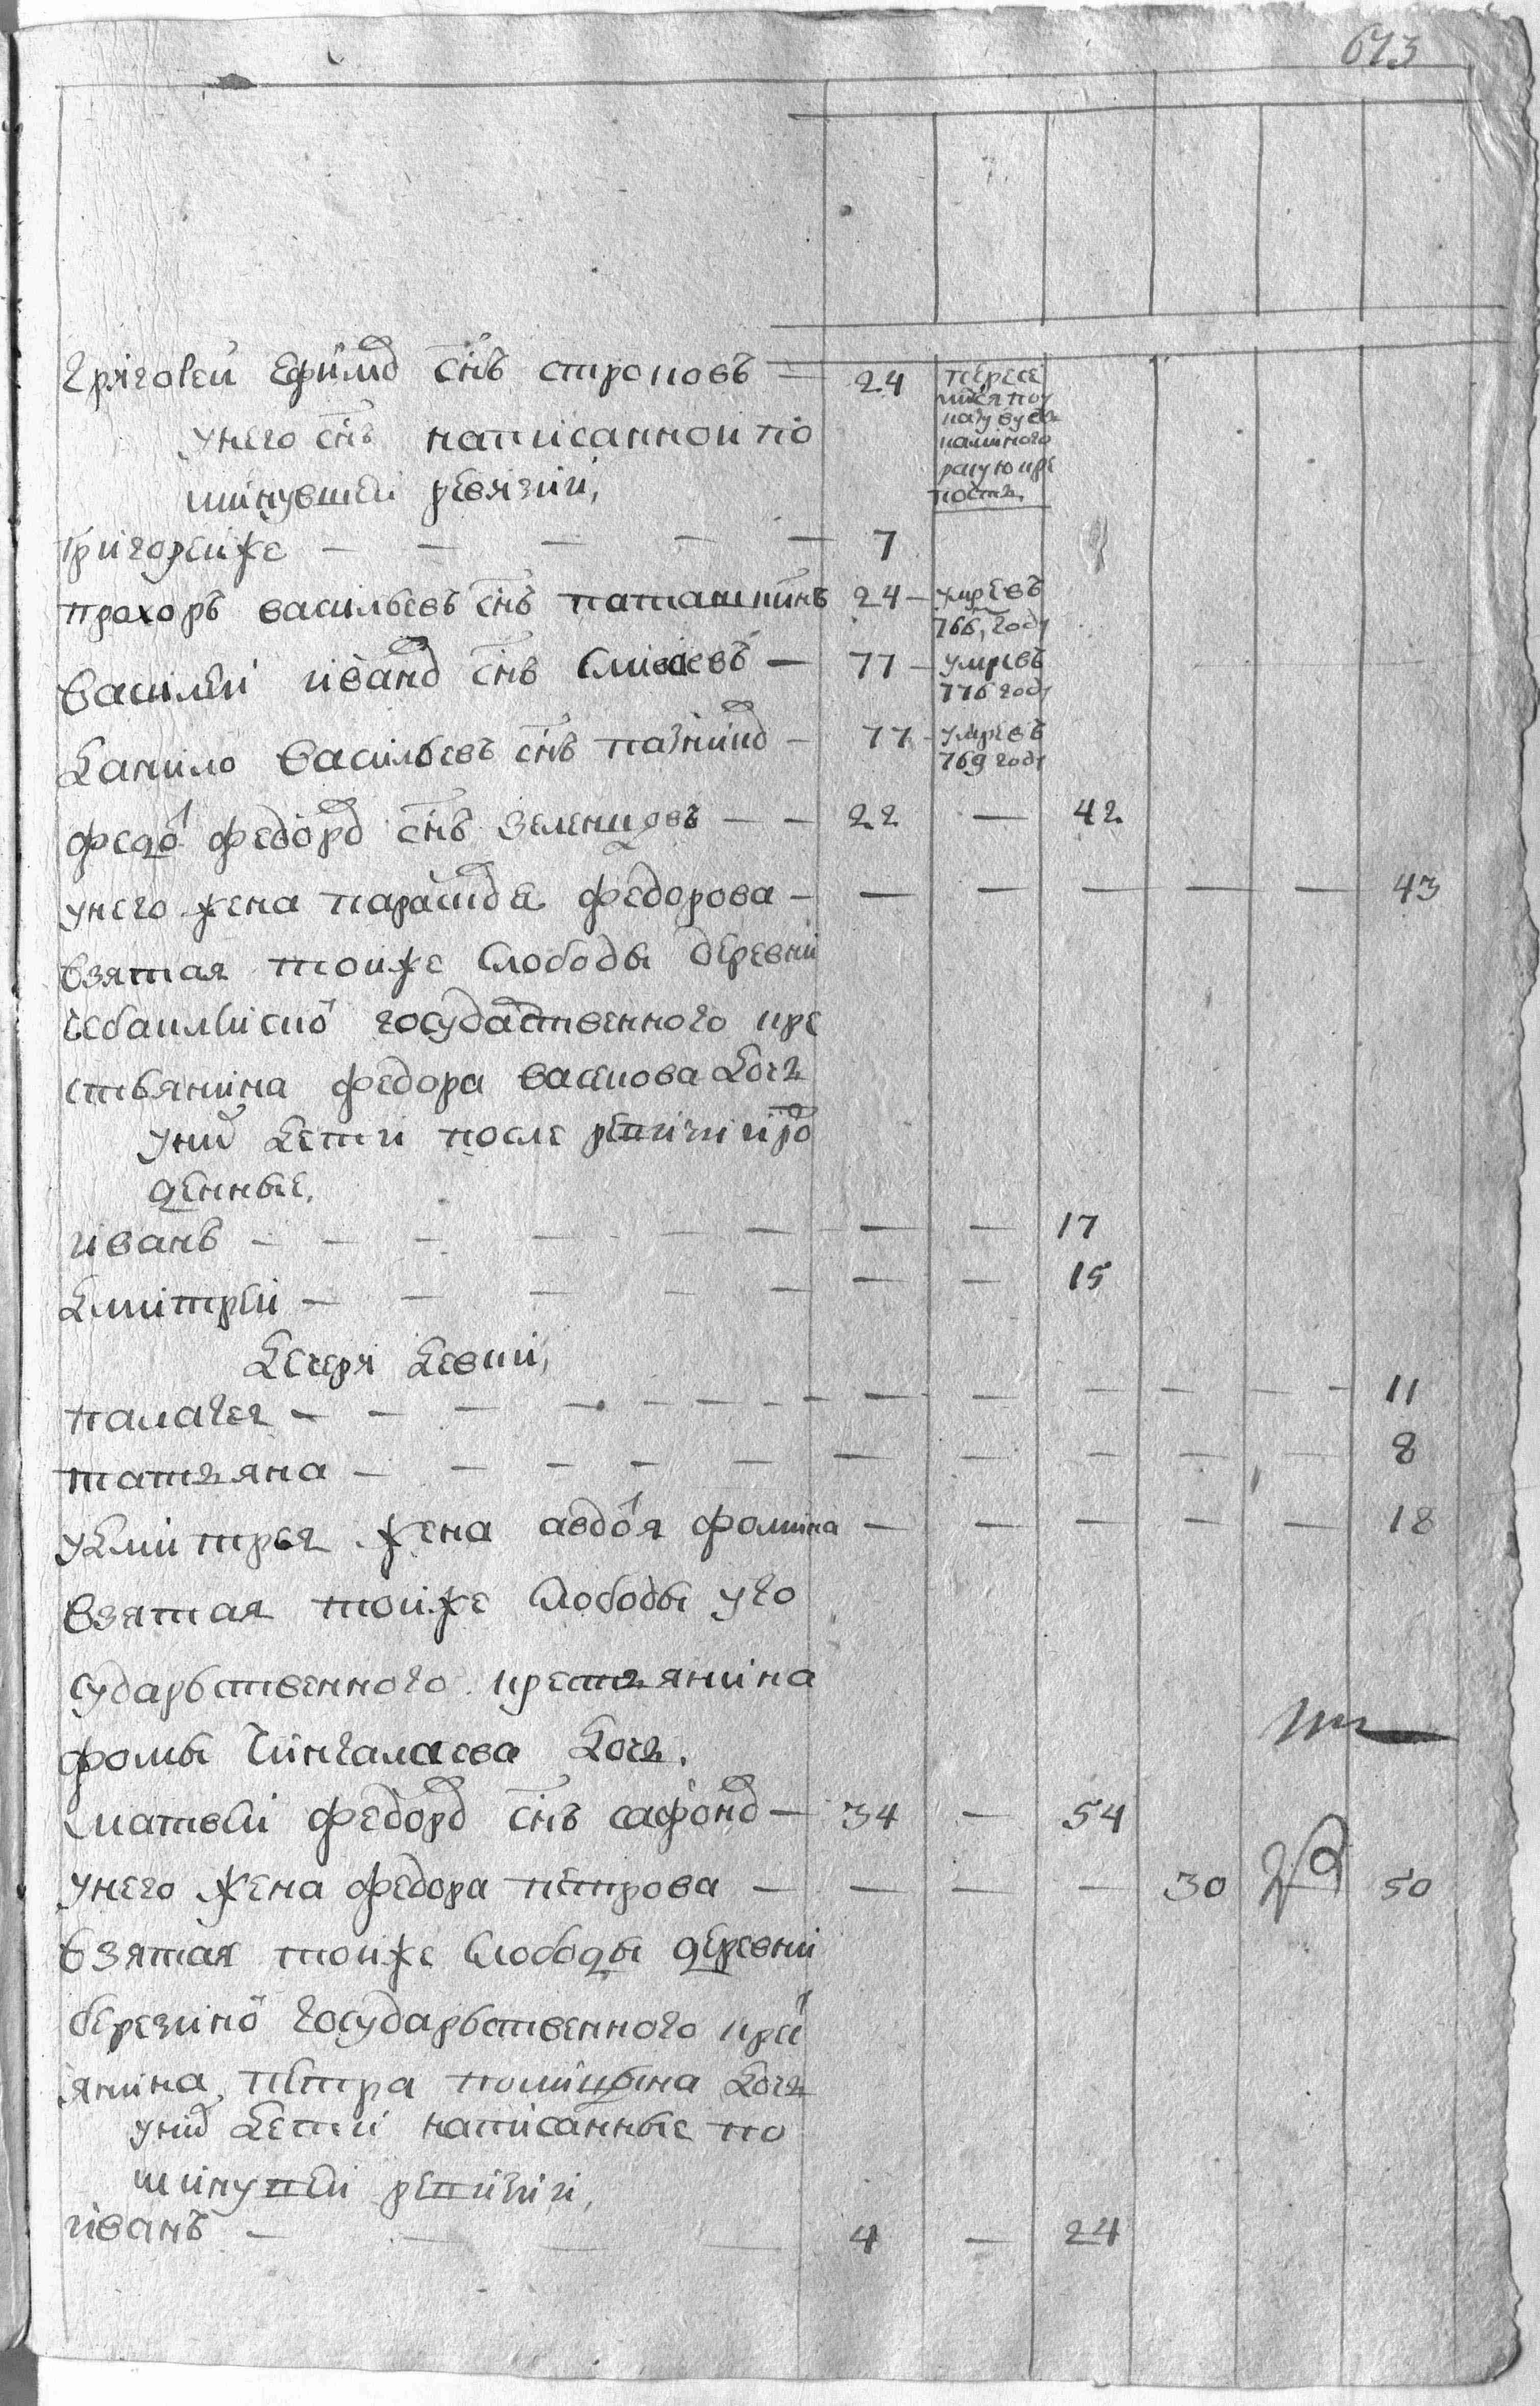 673
Григореи Ефимов снъ строковъ — 24 пересе
лился по у
казу в усть
каминого
рскую кре
пость
У него снъ написанной по
минувшеи ревизии,
Григореи же — — — — — 7
Прохоръ васильевъ снъ паташнинъ 24 — умре въ
766, году
Василеи иванов снъ — 77 — умре въ
776 году
Данило васильевъ снъ — 77 — умре въ
769 году
федо федоров снъ зеленцовъ — — 22 — 42
унего жена парасковя федорова — — — — — — 43
взятая тоиже слободы деревни
государственного кре
стьянина федора васкова дочь
уних дети после ревизии ро
жденные,
иванъ — — — — — — — — — 17
дмитреи — — — — — — — 15
дочеря девки,
палагея — — — — — — — — — — — — 11
татьяна — — — — — — — — — — 8
удмитрея жена авдотя фомина — — — — — 18
взятая тоиже слободы у го
сударьственного крестьянина
фомы Чингалаева дочь.
матвеи федоров снъ сафонов — 34 — 54
унего жена федора петрова — — — — 30 50
взятая тоиже слободы деревни
березино государьственного крест
янина петра дочь
уних дети написанные по
минувшеи ревизии,
иванъ — — — — 4 — 24